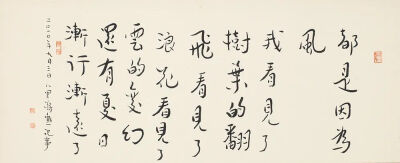 都是因為
風
我看見了
樹葉的翻
飛看見了
浪花看見了
雲的變幻
還有夏日
漸行漸遠了
二〇〇年九月三日八里